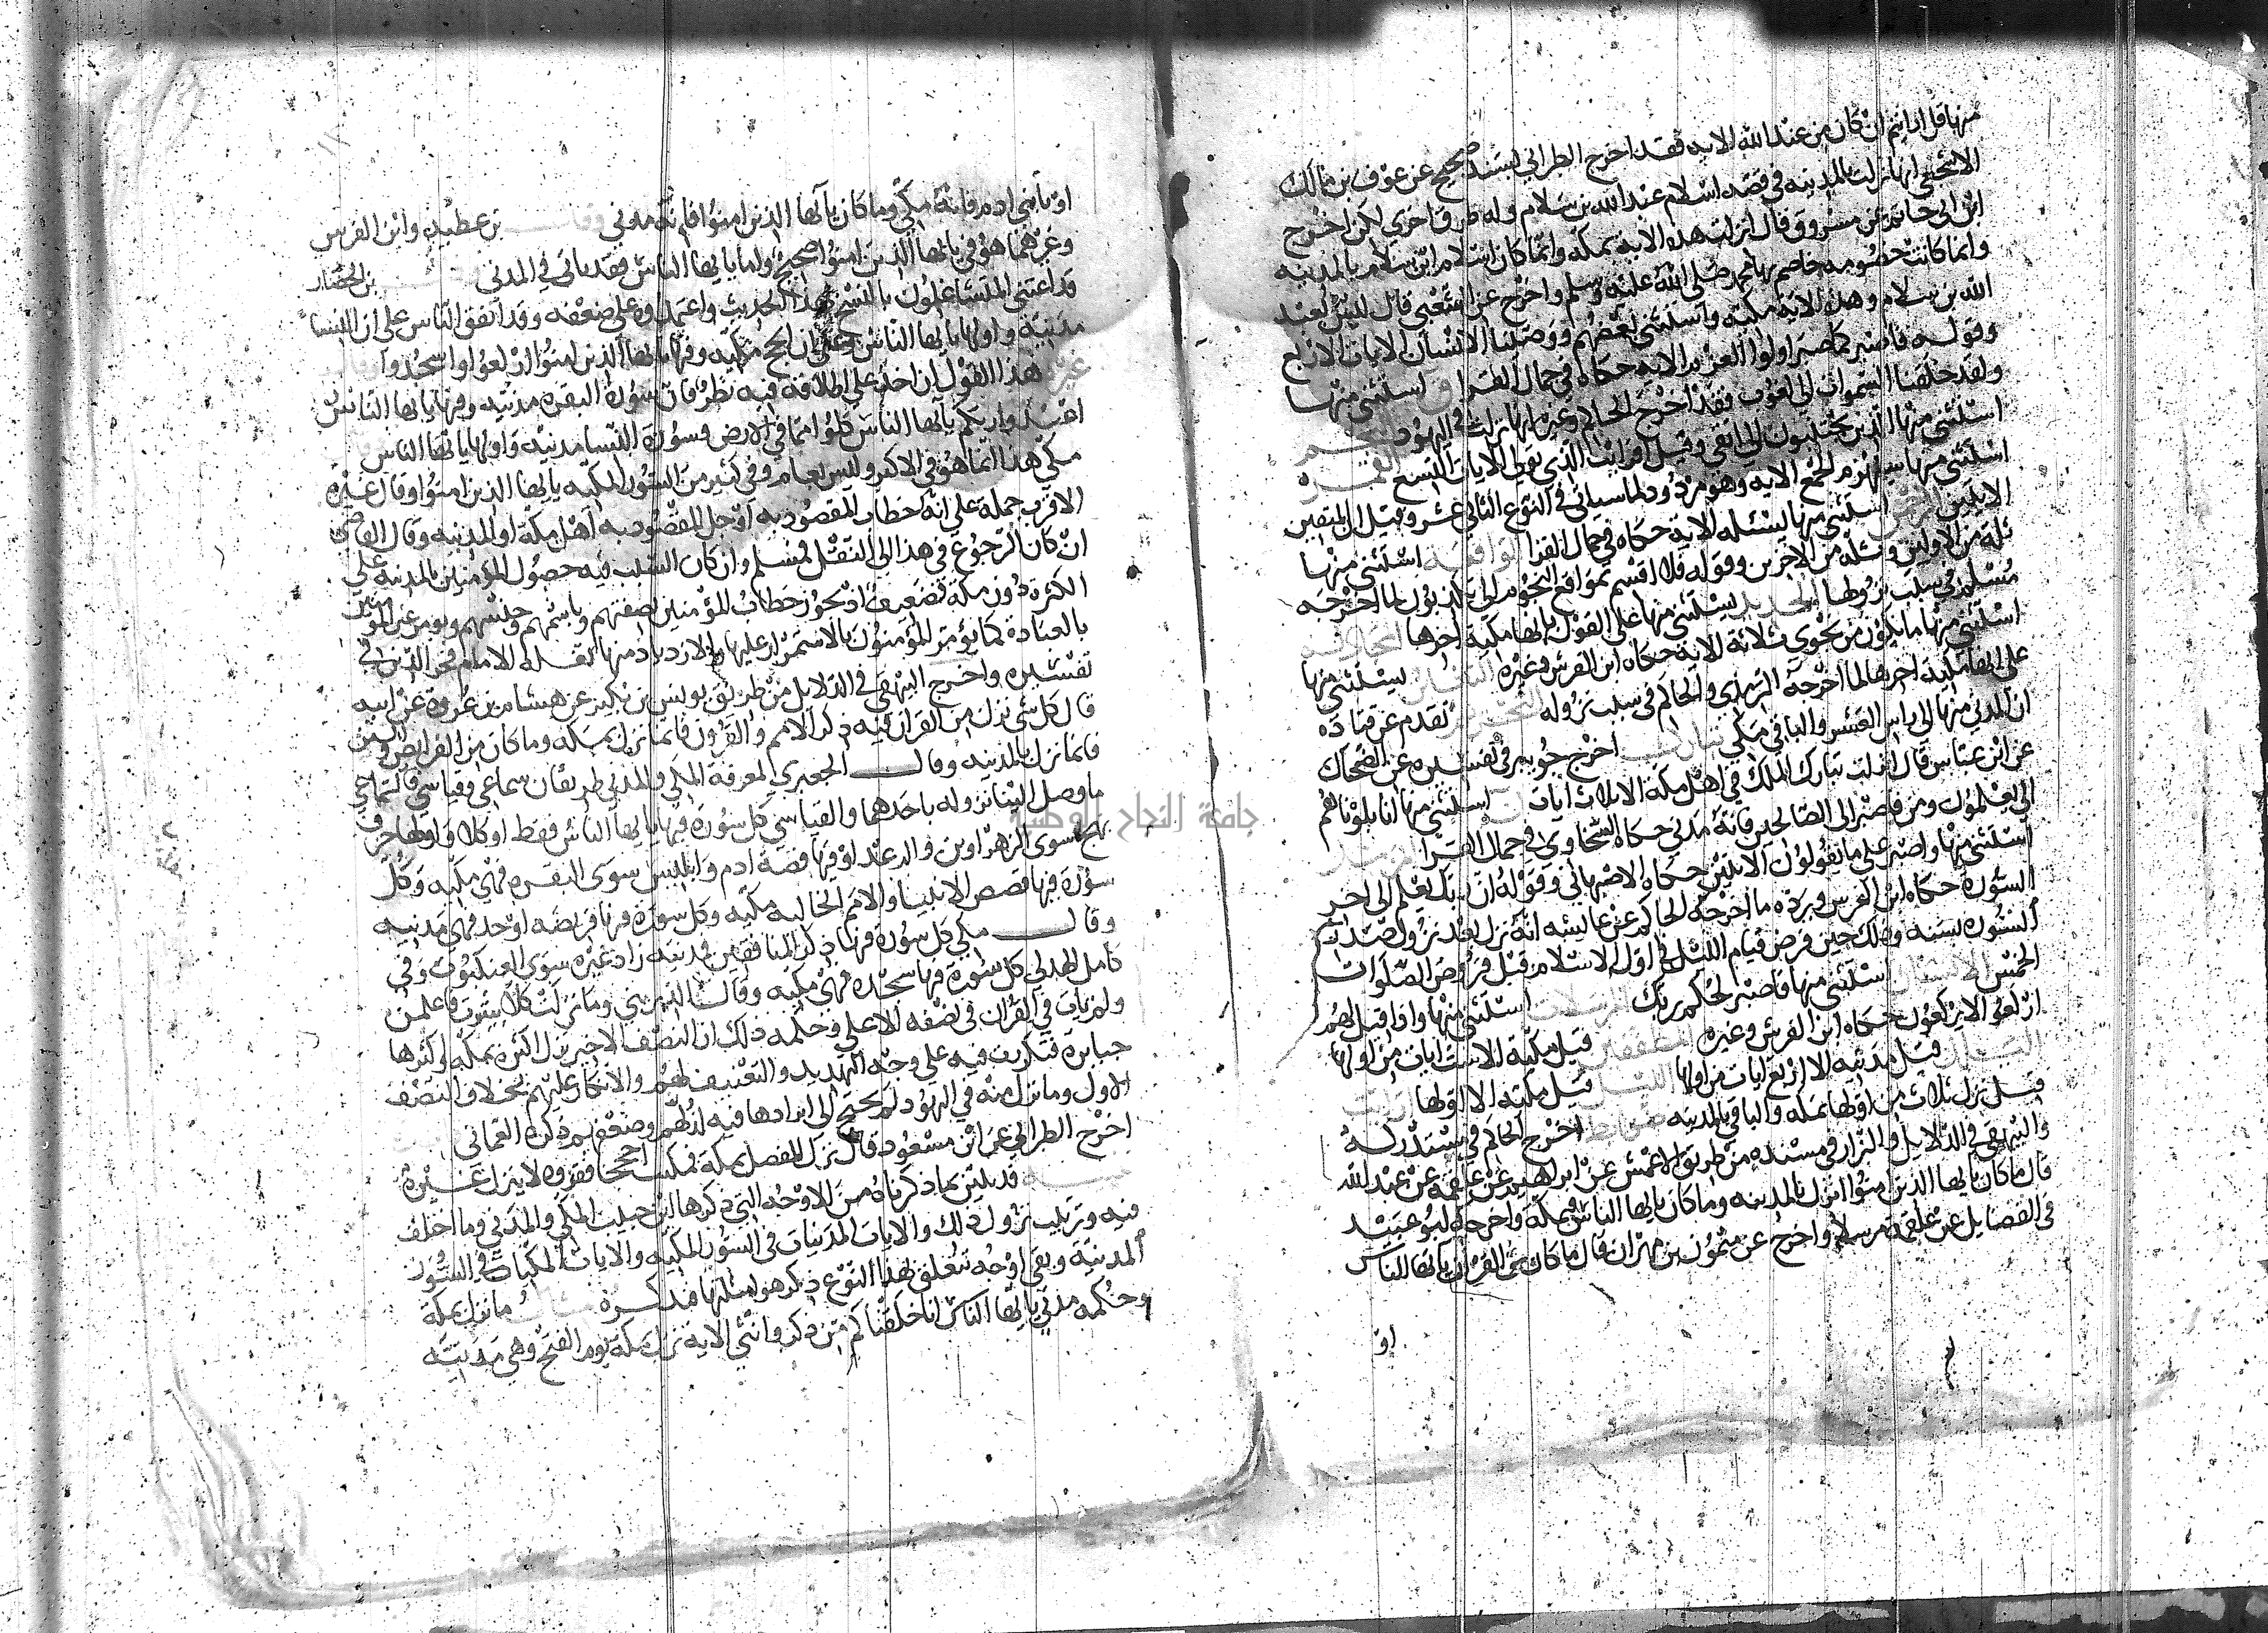 منها قل ارايتم ان كان من عند الله الايه فقد اخرج الطبراني بسند صحيح عن عوف بن مالك
الاشجعي انها نزلت بالمدينه في قصه اسلام عبد الله بن سلام وله طرق اخري لكن اخرج
ابن ابي حاتم عن مسروق قال انزلت هذه الايه بمكه وانما كان اسلام ابن سلام بالمدينه
وانما كانت خصومه خاصم بها محمد صلى الله عليه وسلم واخرج عن الشعبي قال ليس لعبد
الله بن سلام وهذه الاية مكيه واستثني بعضهم ووصينا الانسان الايات الاربع
وقوله فاصبر كما صبر اولوا العزم الايه حكاه في جمال القرا ق استثني منها
ولقد خلقنا السموات الي لغوب فقد اخرج الحاكم وغيره انها نزلت في اليهود النجم
استثني منها الذين يجتنبون الي اتقي وقيل افرايت الذي تولي الايات التسع القمر
استثني منها سيهزم الجمع الايه وهو مردود لما سياتي في النوع الثاني عشر وقيل ان المتقين
الايتين الرحمن استثني منها يسئله الاية حكاه في جمال القرا الواقعه استثني منها
ثلة من الاولين وثلة من الاخرين وقوله فلا اقسم بمواقع النجوم الي تكذبون لما اخرجه
مسلم في سبب نزولها الحديد يستثني منها علي القول بانها مكية اخرها المجادله
استثني منها ما يكون من نجوي ثلاثة الاية حكاه ابن الفرس وغيره التغابن يستثني منها
على انها مكية اخرها لما اخرجه الترمذي والحاكم في سبب نزوله التحريم تقدم عن قتادة
ان المدني منها الي راس العشر والباقي مكي تبارك اخرج جويبر في تفسيره عن الضحاك
عن ابن عباس قال انزلت تبارك الملك في اهل مكة الا ثلاث ايات ن استثني منها انا بلوناهم
الي يعلمون ومن فاصبر الي الصالحين فانه مدني حكاه السخاوي في جمال القرا المزمل
استثني منها واصبر على ما يقولون الايتين حكاه الاصبهاني وقوله ان ربك يعلم الي اخر
السورة حكاه ابن الفرس ويرده ما اخرجه الحاكم عن عائشه انه نزل بعد نزول صدر
السوره بسنه وذلك حين فرض قيام الليل في اول الاسلام قبل فرض الصلوات
الخمس الانسان استثني منها فاصبر لحكم ربك المرسلات استثني منها واذا قيل لهم
اركعوا لا يركعون حكاه ابن الفرس وغيره المطففين قيل مكية الا ست ايات من اولها
البلد قيل مدنيه الا اربع ايات من اولها الليل قيل مكيه الا اولها ارايت
قيل نزل ثلاث من اولها بمكه والباقي بالمدينه ضوابط اخرج الحاكم في مستدركه
والبيهقي في الدلايل والبزار في مسنده من طريق الاعمش عن ابراهيم عن علقمه عن عبد الله
قال ما كان يايها الذين امنوا انزل بالمدينه وما كان يايها الناس فبمكه واخرجه ابو عبيد
في الفضايل عن علقمه مرسلا واخرج عن ميمون بن مهران قال ما كان في القران يايها الناس
او
او يابني ادم فانه مكي وما كان يا ايها الذين امنوا فانه مدني بن عطيه وابن الفرس
وغيرهما هو في يايها الذين امنوا صحيح واما يايها الناس فقد ياتي في المدني بن الحصار
قد اعتني المتشاغلون بالنسخ بهذا الحديث واعتمدوه علي ضعفه وقد اتفق الناس على ان النسا
مدنية واولها يايها الناس وعلي ان الحج مكيه وفيها يايها الذين امنوا اركعوا واسجدوا
غيره هذا القول ان اخذ علي اطلاقه فيه نظر فان سورة البقره مدنيه وفيها يايها الناس
اعبدوا ربكم يا ايها الناس كلوا مما في الارض وسورة النسا مدنيه واولها يايها الناس
مكي هذا انما هو في الاكثر وليس بعام وفي كثير من السور المكيه يايها الذين امنوا وقال غيره
الاقرب حمله علي انه خطاب المقصود به او جل المقصود به اهل مكة او المدينه وقال القاضي
ان كان الرجوع في هذا الي النقل فمسلم وان كان السبب فيه حصول المؤمنين بالمدينه علي
الكثرة دون مكة فضعيف اذ يجوز خطاب المؤمنين بصفتهم وباسمهم وجنسهم ويومر غير المؤمنين
بالعبادة كما يؤمر المؤمنون بالاستمرار عليها والازدياد منها نقله الامام فخر الدين في
تفسيره واخرج البيهقي في الدلايل من طريق يونس بن بكير عن هشام بن عروة عن ابيه
قال كل شي نزل من القران فيه ذكر الامم والقرون فانما نزل بمكه وما كان من الفرايض والسنن
فانما نزل بالمدينه وقال الجعبري لمعرفة المكي والمدني طريقان سماعي وقياسي فالسماعي
ما وصل الينا نزوله باحدهما والقياسي كل سورة فيها يايها الناس فقط او كلا واولها حرف
تهج سوى الزهراوين والرعد او فيها قصة ادم وابليس سوى البقره فهي مكيه وكل
سورة فيها قصص الانبيا والامم الخاليه مكيه وكل سورة فيها فريضه او حد فهي مدنيه
وقال مكي كل سورة فيها ذكر المنافقين فمدنيه زاد غيره سوى العنكبوت وفي
كامل الهذلي كل سورة فيها سجدة فهي مكيه وقال الديريني وما نزلت كلا بيثرب فاعلمن
ولم يات في القران في نصفه الاعلي وحكمه ذلك ان النصف الاخير نزل اكثره بمكه واكثرها
جبابرة فتكررت فيه علي وجه التهديد والتعنيف لهم والانكار عليهم بخلاف النصف
الاول وما نزل منه في اليهود لم يحتج الي ايرادها فيه لذلهم وضعفهم ذكره العماني
اخرج الطبراني عن ابن مسعود قال نزل المفصل بمكة فمكثنا حججا نقروه لا ينزل غيره
قد تبين بما ذكرناه من الاوجه التي ذكرها ابن حبيب المكي والمدني وما اختلف
فيه وترتيب نزول ذلك والايات المدنيات في السور المكيه والايات المكيات في السور
المدنية وبقي اوجه تتعلق بهذا النوع ذكر هو امثلتها فنذكره مثال ما نزل بمكة
وحكمه مدني يايها الناس انا خلقناكم من ذكر وانثي الاية نزل بمكة يوم الفتح وهي مدنيه
جامعة النجاح الوطنية